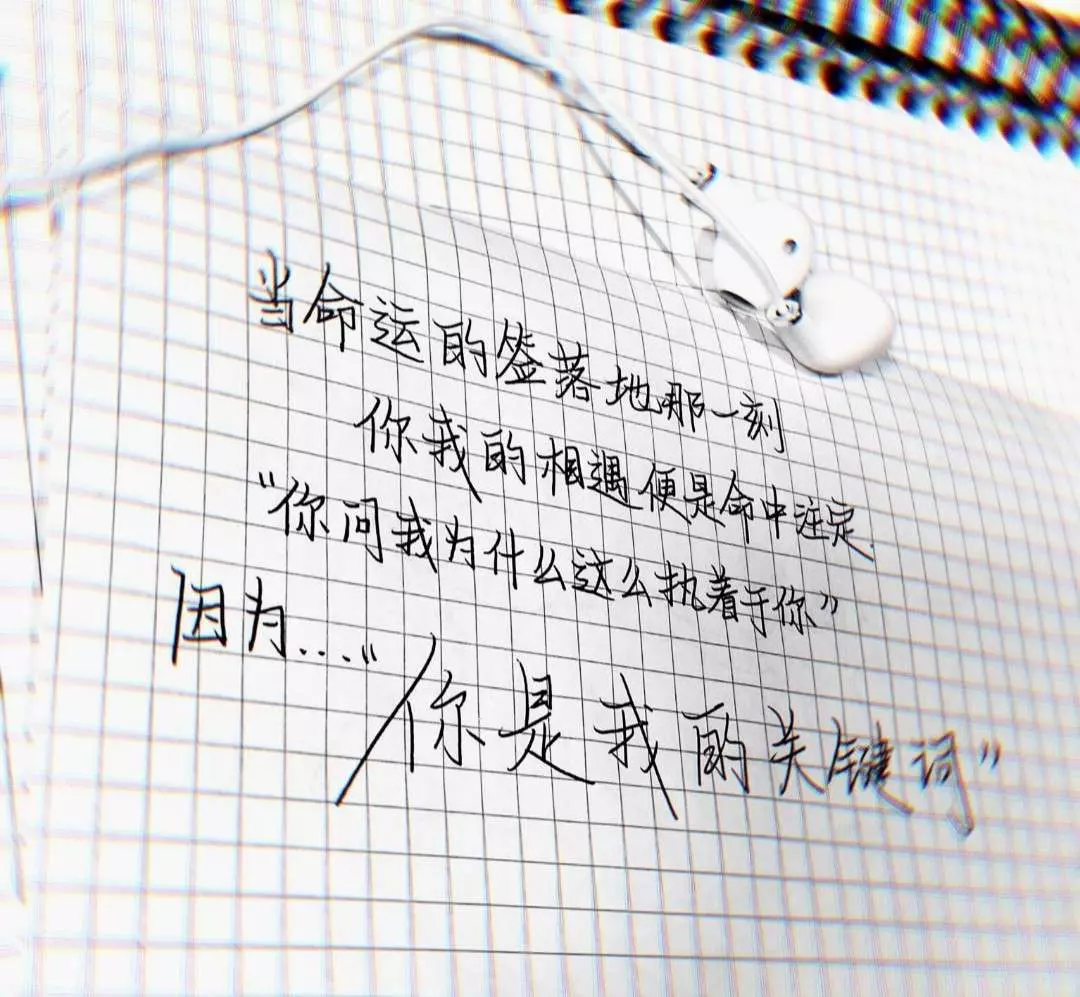 当命运的签落地那一刻
你我的相遇便是命中注定.
“你问我为什么这么执着于你”
因为....“你是我的关键词”